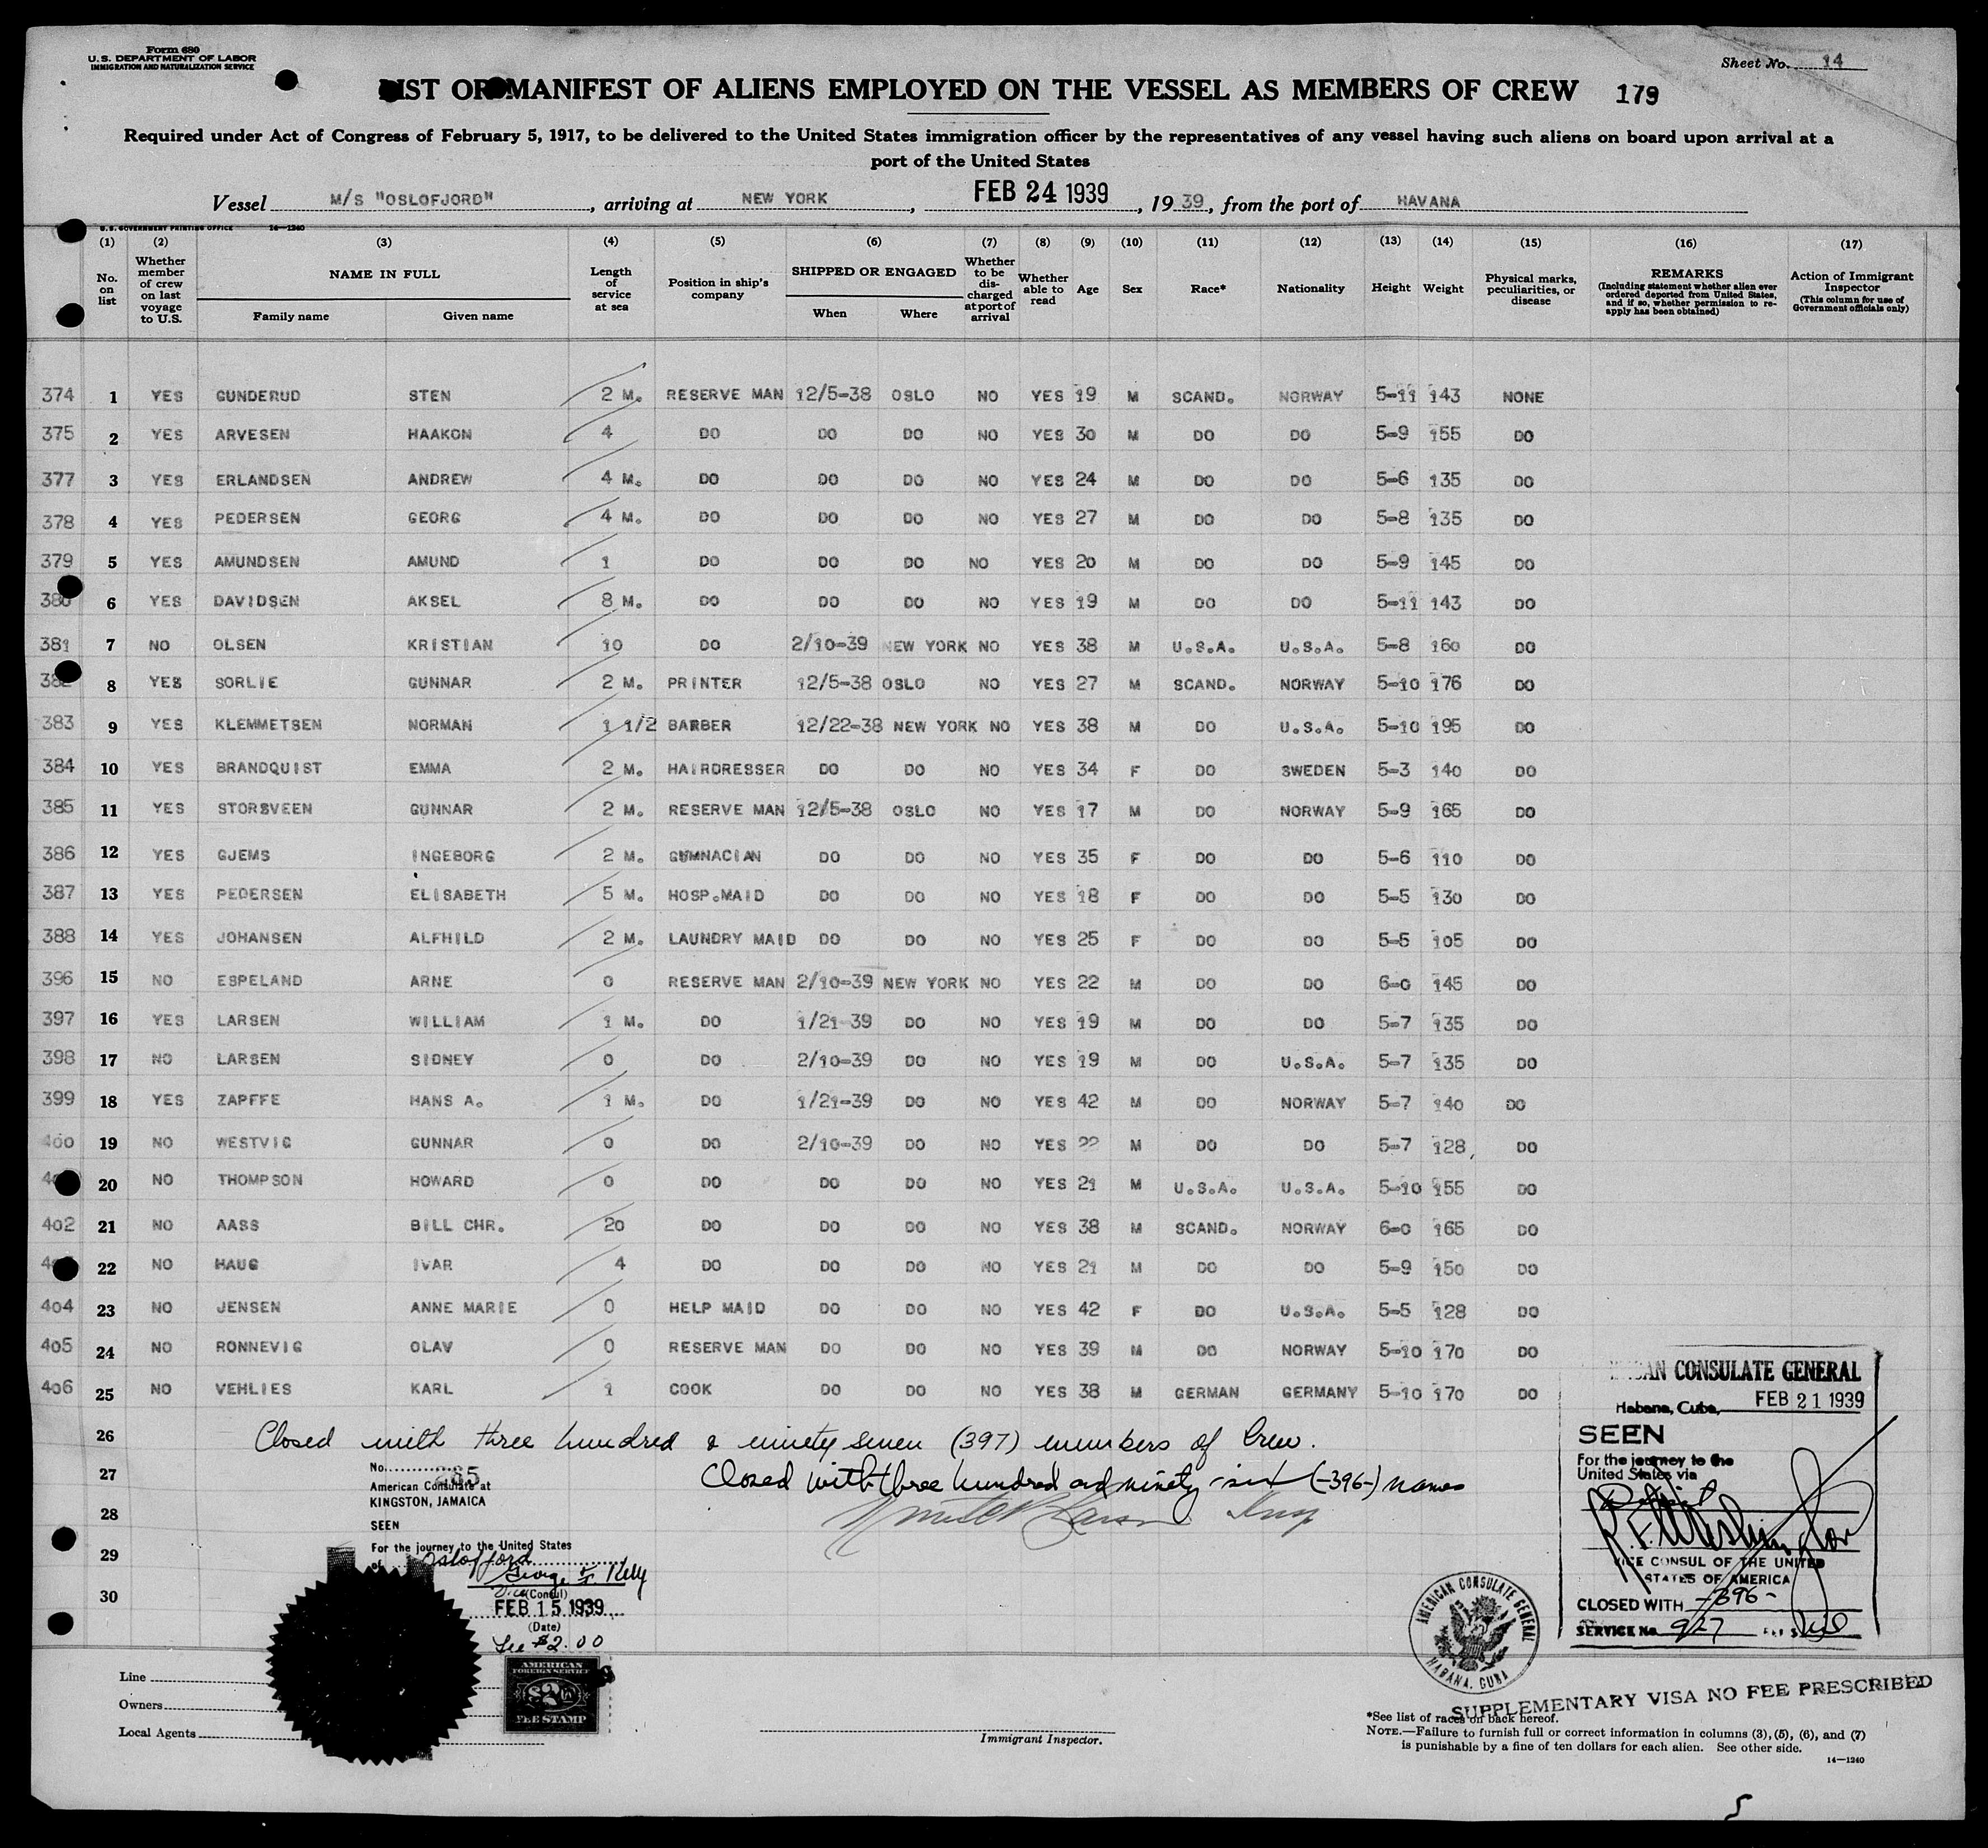 Form 680
U.S. DEPARTMENT OF LABOR
IMMIGRATION AND NATURALIZATION SERVICE
Sheet No. 14
LIST OR MANIFEST OF ALIENS EMPLOYED ON THE VESSEL AS MEMBERS OF CREW 179
Required under Act of Congress of February 5, 1917, to be delivered to the United States immigration officer by the representatives of any vessel having such aliens on board upon arrival at a
port of the United States
Vessel M/S "OSLOFJORD", arriving at NEW YORK, FEB 24 1939, 1939, from the port of HAVANA
U.S. GOVERNMENT PRINTING OFFICE 14—1240
(1) (2) (3) (4) (5) (6) (7) (8) (9) (10) (11) (12) (13) (14) (15) (16) (17)
No. on list
Whether member of crew on last voyage to U.S.
NAME IN FULL
Family name Given name
Length of service at sea
Position in ship's company
SHIPPED OR ENGAGED
When Where
Whether to be discharged at port of arrival
Whether able to read
Age
Sex
Race*
Nationality
Height
Weight
Physical marks, peculiarities, or disease
REMARKS
(Including statement whether alien ever ordered deported from United States, and if so, whether permission to reapply has been obtained)
Action of Immigrant Inspector
(This column for use of Government officials only)
374 1 YES GUNDERUD STEN 2 M. RESERVE MAN 12/5-38 OSLO NO YES 19 M SCAND. NORWAY 5-11 143 NONE
375 2 YES ARVESEN HAAKON 4 DO DO DO NO YES 30 M DO DO 5-9 155 DO
377 3 YES ERLANDSEN ANDREW 4 M. DO DO DO NO YES 24 M DO DO 5-6 135 DO
378 4 YES PEDERSEN GEORG 4 M. DO DO DO NO YES 27 M DO DO 5-8 135 DO
379 5 YES AMUNDSEN AMUND 1 DO DO DO NO YES 20 M DO DO 5-9 145 DO
380 6 YES DAVIDSEN AKSEL 8 M. DO DO DO NO YES 19 M DO DO 5-11 143 DO
381 7 NO OLSEN KRISTIAN 10 DO 2/10-39 NEW YORK NO YES 38 M U.S.A. U.S.A. 5-8 160 DO
382 8 YES SORLIE GUNNAR 2 M. PRINTER 12/5-38 OSLO NO YES 27 M SCAND. NORWAY 5-10 176 DO
383 9 YES KLEMMETSEN NORMAN 1 1/2 BARBER 12/22-38 NEW YORK NO YES 38 M DO U.S.A. 5-10 195 DO
384 10 YES BRANDQUIST EMMA 2 M. HAIRDRESSER DO DO NO YES 34 F DO SWEDEN 5-3 140 DO
385 11 YES STORSVEEN GUNNAR 2 M. RESERVE MAN 12/5-38 OSLO NO YES 17 M DO NORWAY 5-9 165 DO
386 12 YES GJEMS INGEBORG 2 M. GUMNACIAN DO DO NO YES 35 F DO DO 5-6 110 DO
387 13 YES PEDERSEN ELISABETH 5 M. HOSP.MAID DO DO NO YES 18 F DO DO 5-5 130 DO
388 14 YES JOHANSEN ALFHILD 2 M. LAUNDRY MAID DO DO NO YES 25 F DO DO 5-5 105 DO
396 15 NO ESPELAND ARNE 0 RESERVE MAN 2/10-39 NEW YORK NO YES 22 M DO DO 6-0 145 DO
397 16 YES LARSEN WILLIAM 1 M. DO 1/21-39 DO NO YES 19 M DO DO 5-7 135 DO
398 17 NO LARSEN SIDNEY 0 DO 2/10-39 DO NO YES 19 M DO U.S.A. 5-7 135 DO
399 18 YES ZAPFFE HANS A. 1 M. DO 1/21-39 DO NO YES 42 M DO NORWAY 5-7 140 DO
400 19 NO WESTVIG GUNNAR 0 DO 2/10-39 DO NO YES 22 M DO DO 5-7 128 DO
20 NO THOMPSON HOWARD 0 DO DO DO NO YES 21 M U.S.A. U.S.A. 5-10 155 DO
402 21 NO AASS BILL CHR. 20 DO DO DO NO YES 38 M SCAND. NORWAY 6-0 165 DO
22 NO HAUG IVAR 4 DO DO DO NO YES 21 M DO DO 5-9 150 DO
404 23 NO JENSEN ANNE MARIE 0 HELP MAID DO DO NO YES 42 F DO U.S.A. 5-5 128 DO
405 24 NO RONNEVIG OLAV 0 RESERVE MAN DO DO NO YES 39 M DO NORWAY 5-10 170 DO
406 25 NO VEHLIES KARL 1 COOK DO DO NO YES 38 M GERMAN GERMANY 5-10 170 DO
26 Closed with three hundred & ninety seven (397) members of Crew.
27 Closed with three hundred and ninety six (-396-) names
28
29
30
No. 265
American Consulate at
KINGSTON, JAMAICA
SEEN
For the journey to the United States
of Oslofjord
George F. Kelly
Vice (Consul)
FEB 15 1939
(Date)
Fee $2.00
AMERICAN
FOREIGN SERVICE
$2
FEE STAMP
CAN CONSULATE GENERAL
Habana, Cuba, FEB 21 1939
SEEN
For the journey to the
United States via
VICE CONSUL OF THE UNITED
STATES OF AMERICA
CLOSED WITH -396-
SERVICE No. 927
AMERICAN CONSULATE GENERAL
HABANA, CUBA
SUPPLEMENTARY VISA NO FEE PRESCRIBED
Line
Owners
Local Agents
Immigrant Inspector.
*See list of races on back hereof.
NOTE.—Failure to furnish full or correct information in columns (3), (5), (6), and (7)
is punishable by a fine of ten dollars for each alien. See other side.
14—1240
5